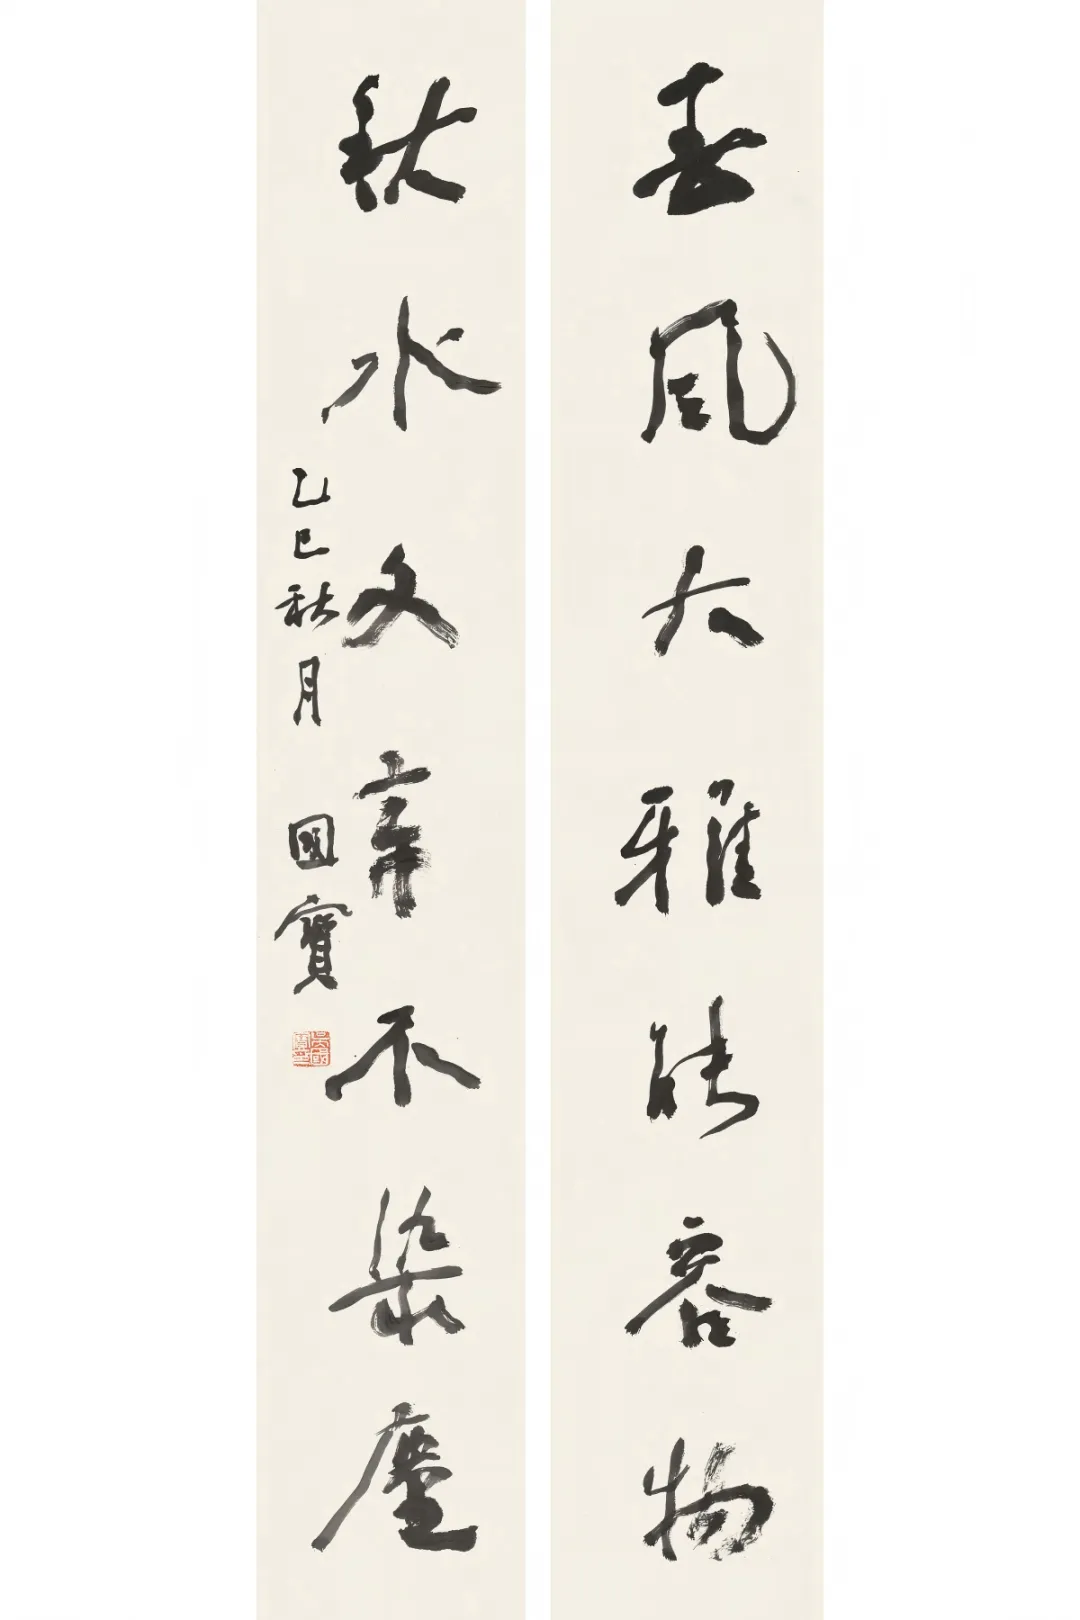 春風大雅能容物
秋水文章不染塵
乙巳秋月 國寶